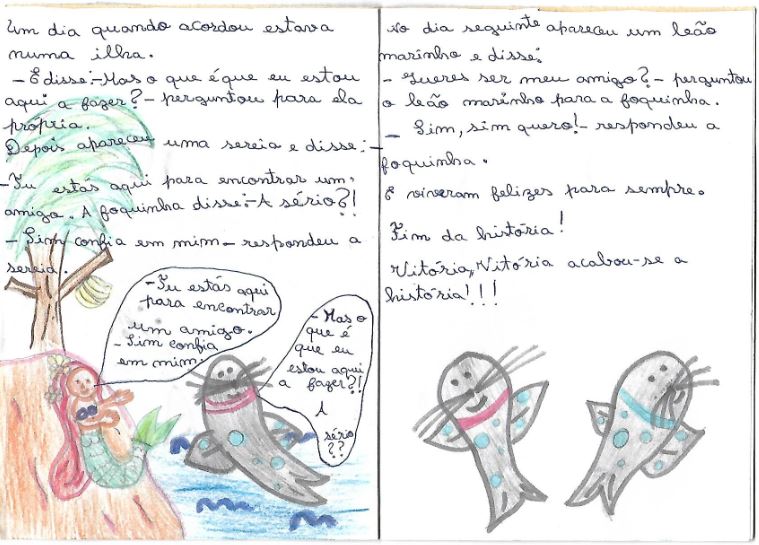 Um dia quando acordou estava
numa ilha.
- E disse:-Mas o que é que eu estou
aqui a fazer?- perguntou para ela
própria.
Depois apareceu uma sereia e disse:-
-Tu estás aqui para encontrar um
amigo. A foquinha disse:-A sério?!
- Sim confia em mim- respondeu a
sereia.
-Tu estás aqui
para encontrar
um amigo.
- Sim confia
em mim.
- Mas o
que é
que eu
estou aqui
a fazer?!
A
sério
??
No dia seguinte apareceu um leão
marinho e disse:
- Queres ser meu amigo?- perguntou
o leão marinho para a foquinha.
- Sim, sim quero!- respondeu a
foquinha.
E viveram felizes para sempre.
Fim da história!
Vitória, Vitória acabou-se a
história!!!